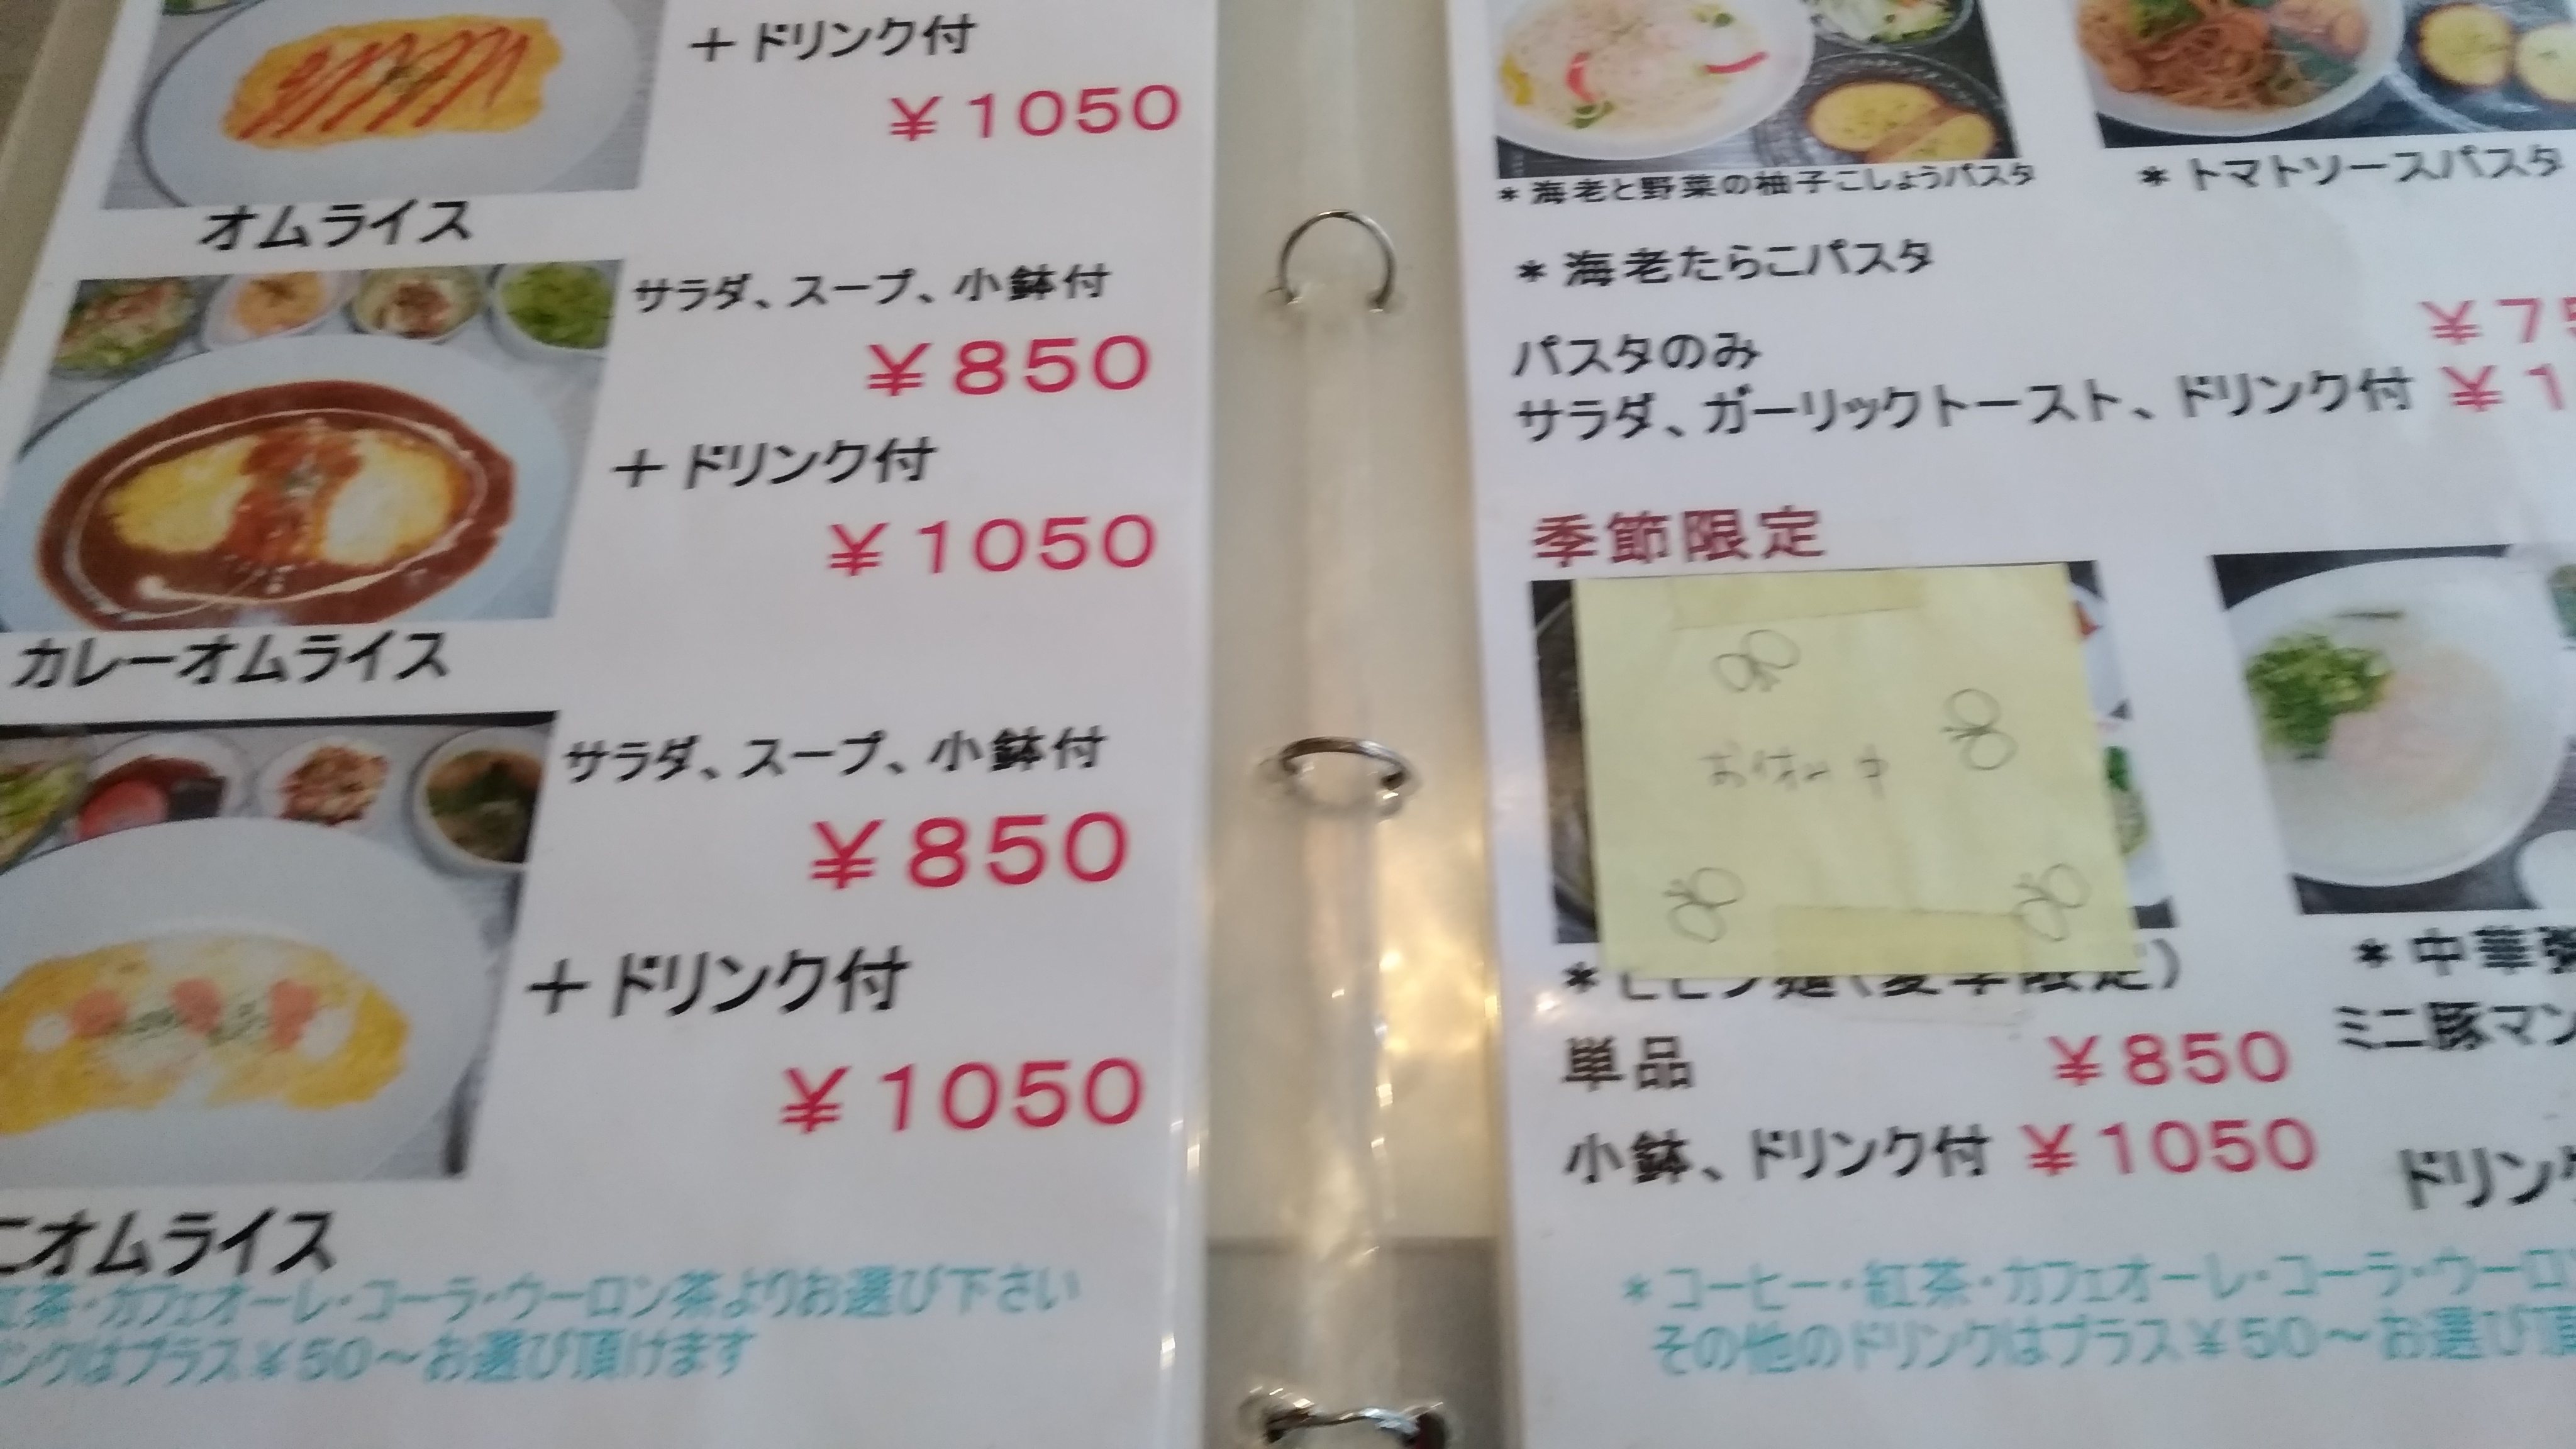 ＋ドリンク付
￥1050
オムライス
サラダ、スープ、小鉢付
￥850
＋ドリンク付
￥1050
カレーオムライス
サラダ、スープ、小鉢付
￥850
＋ドリンク付
￥1050
ニオムライス
紅茶・カフェオーレ・コーラ・ウーロン茶よりお選び下さい
ンクはプラス￥50～お選び頂けます
＊海老と野菜の柚子こしょうパスタ
＊トマトソースパスタ
＊海老たらこパスタ
パスタのみ ￥75
サラダ、ガーリックトースト、ドリンク付 ￥1
季節限定
お休み中
＊ビビン麺（夏季限定）
単品 ￥850
小鉢、ドリンク付 ￥1050
＊中華粥
ミニ豚マン
ドリンク
＊コーヒー・紅茶・カフェオーレ・コーラ・ウーロ
その他のドリンクはプラス￥50～お選び頂